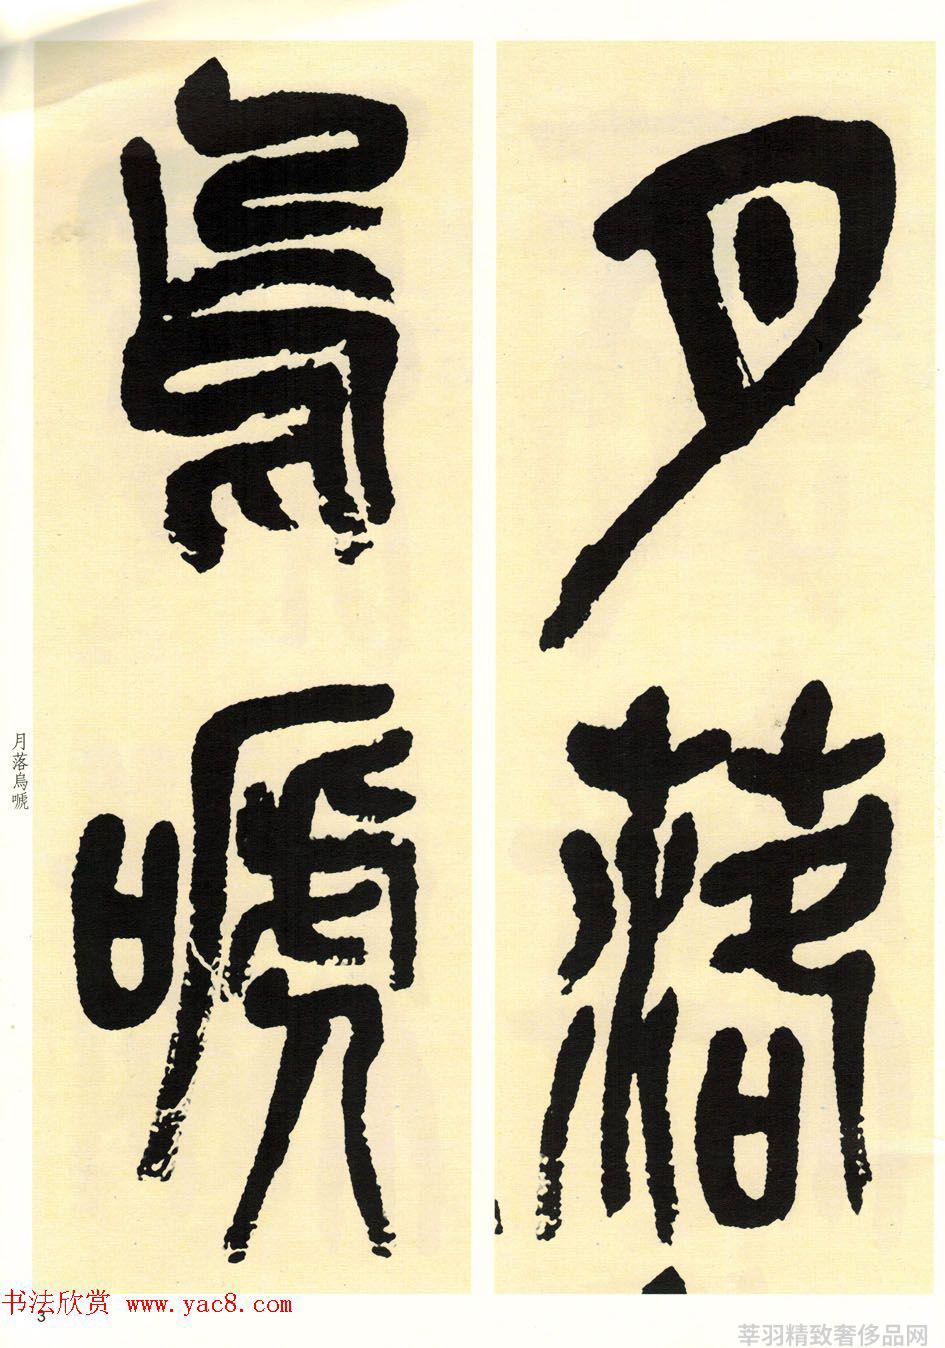 月落
烏嗁
月落烏嗁
书法欣赏 www.yac8.com
3
莘羽精致奢侈品网